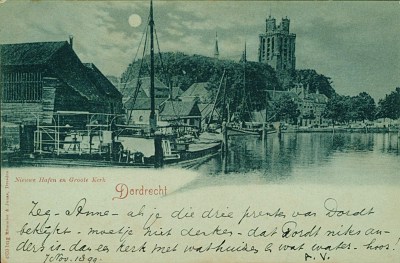 Nieuwe Haven en Groote Kerk
Dordrecht
Zeg - Anne - als je die drie prenten van Dordt
bekijkt - moet je niet denken - dat Dordt niks an-
ders is dan een kerk met wat huizen & wat water - hoor!
7 Nov. 1899. A. V.